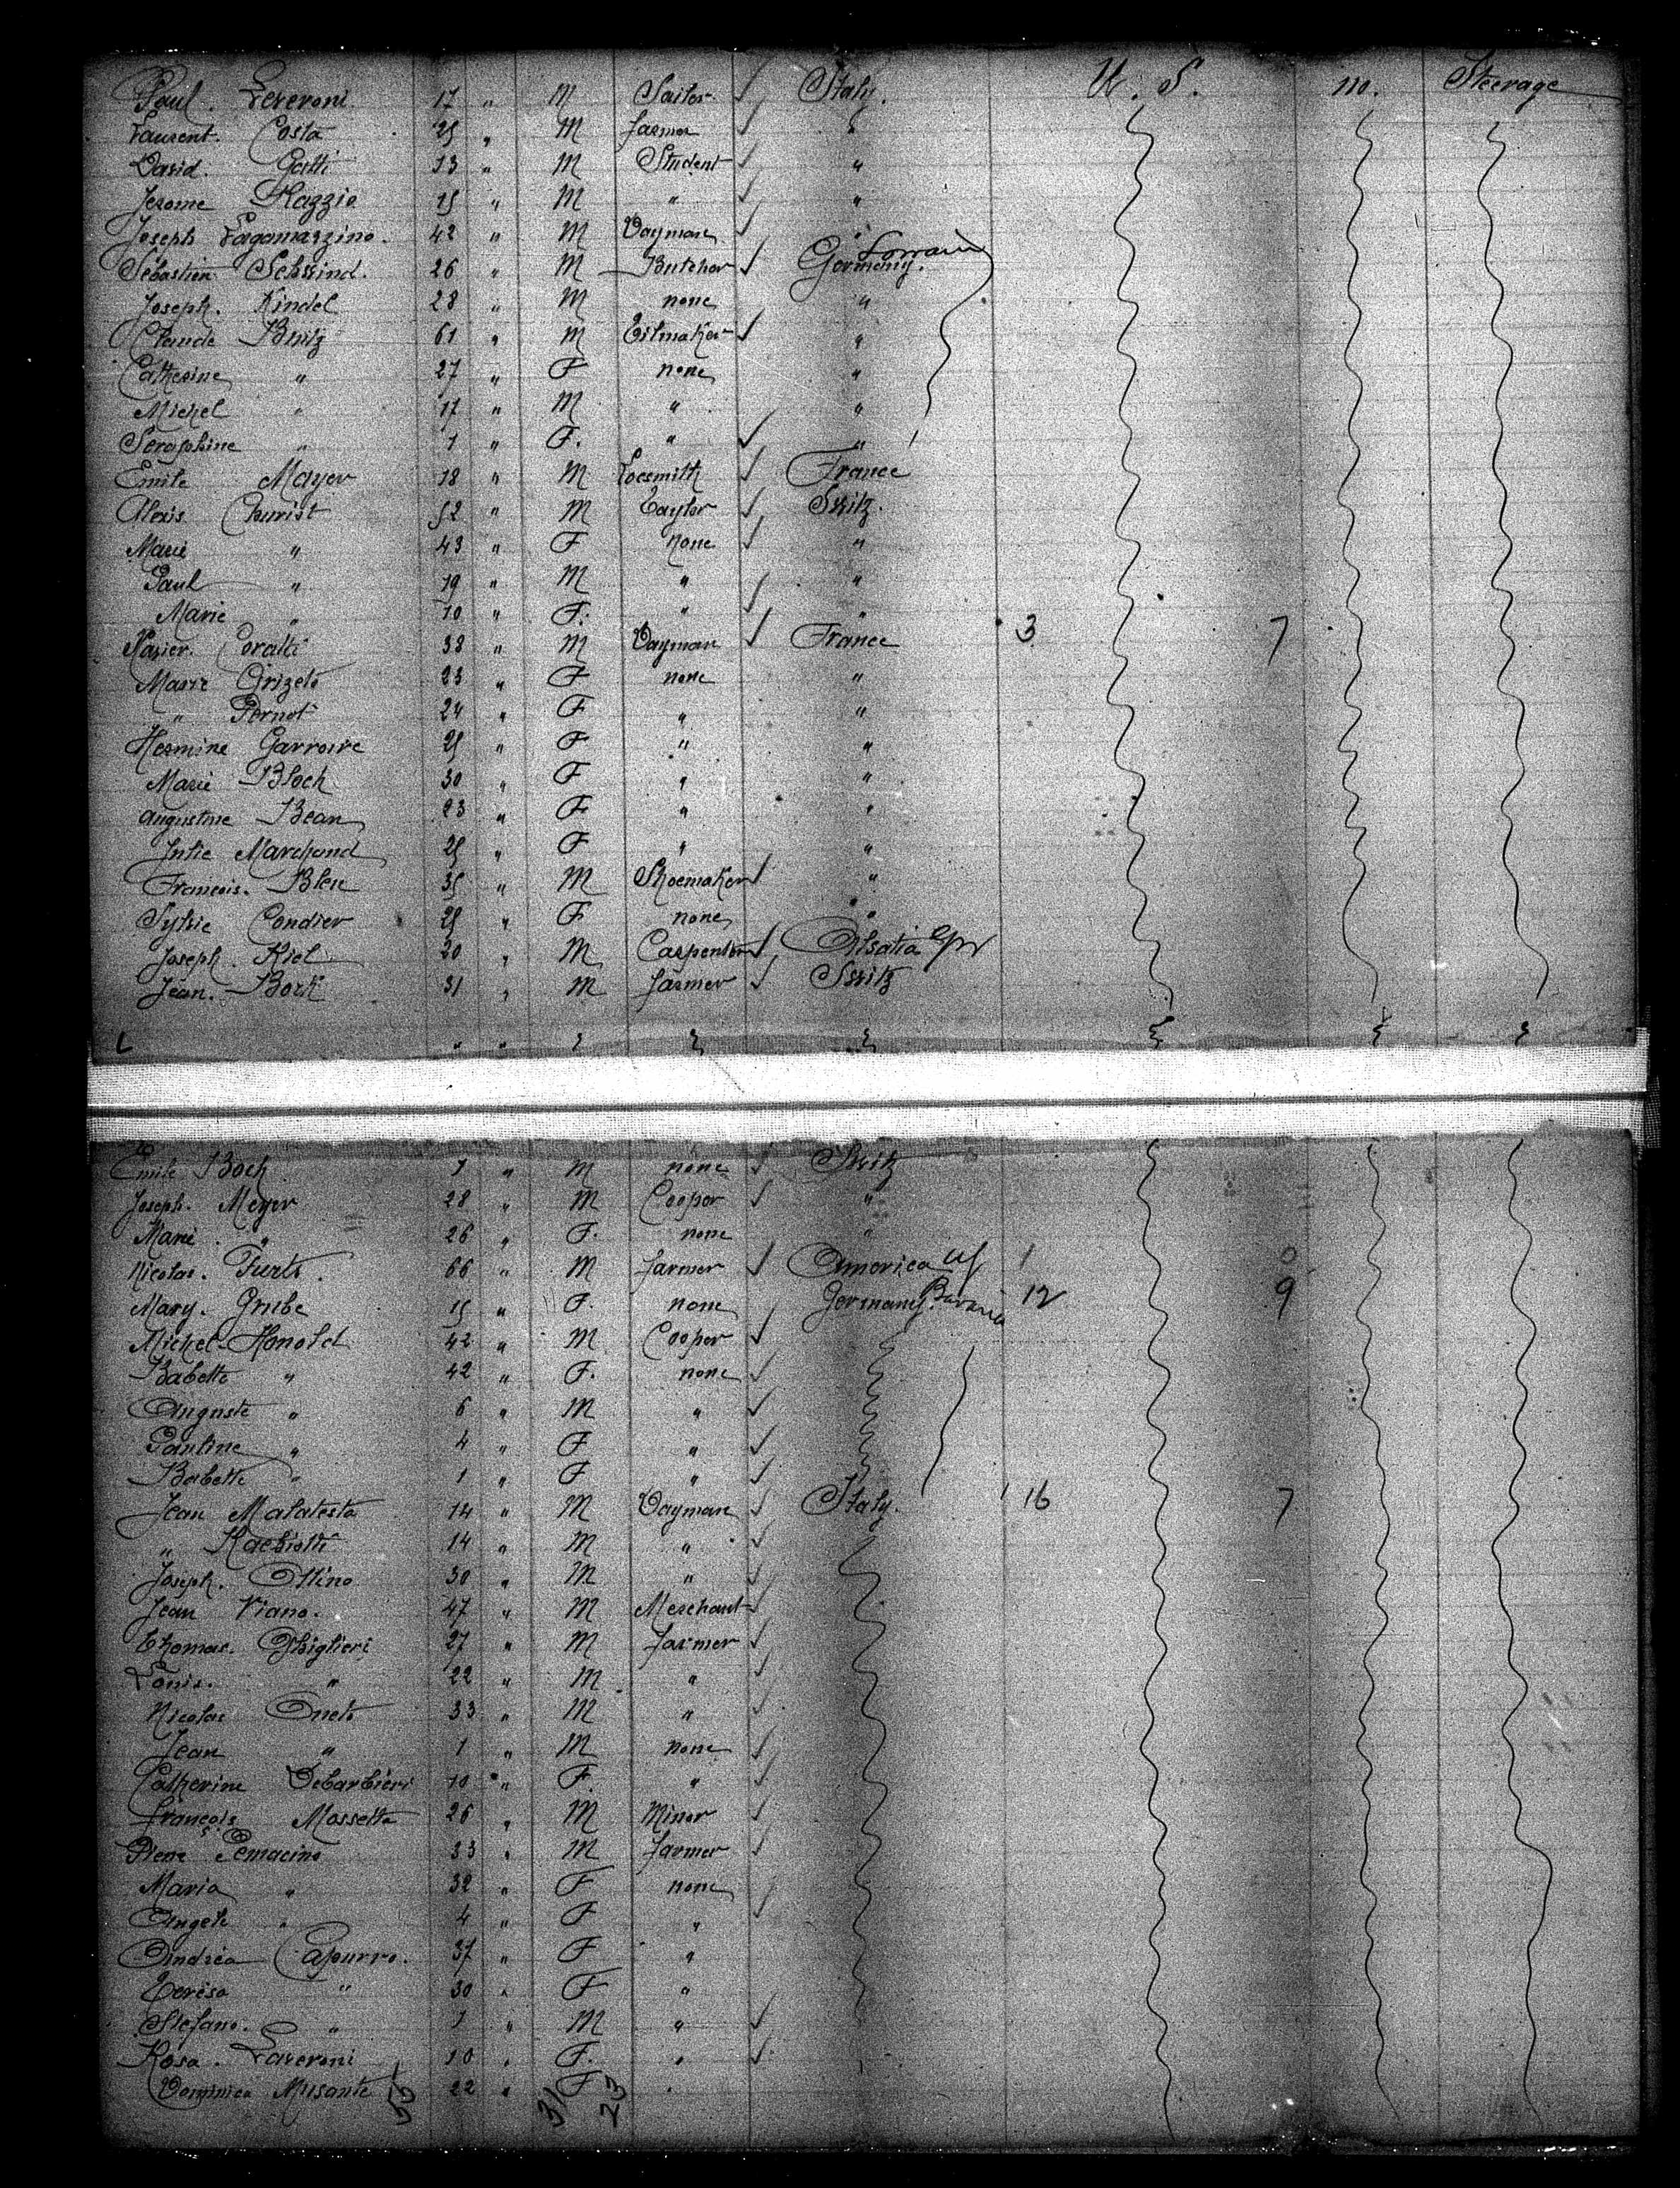 Paul. Leveroni 17 " M Sailor Italy. U. S. no. Steerage
Laurent. Costa 25 " M farmer "
David. Gatti 13 " M Student "
Jerome Razzio 15 " M " "
Joseph Fagomazzino. 42 " M Dayman "
Sébastien Schwind. 26 " M Butcher Germany. Lorrain
Joseph. Kindel 28 " M none "
Claude Bnitz 61 " M Tilmaker "
Catherine " 27 " F none "
Michel " 17 " M " "
Seraphine " 1 " F. " "
Emile Mayer 18 " M Locsmith France
Alexis Chu­rist 52 " M Taylor Switz.
Marie " 43 " F none "
Paul " 19 " M " "
Marie " 10 " F. " "
Xavier. Coratti 38 " M Dayman France 3 7
Marie Grizeto 23 " F none "
" Pernot 24 " F " "
Hermine Garroire 25 " F " "
Marie Bloch 30 " F " "
Augustine Bean 23 " F " "
Julie Marchand 25 " F " "
François. Bleu 35 " M Shoemaker "
Sylvie Condier 25 " F none "
Joseph. Kiel 20 " M Carpenter Alsatia Gr
Jean. Bock 31 " M farmer Switz
L " "
Emile Boch 1 " M none Switz
Joseph. Meyer 28 " M Cooper "
Marie " 26 " F. none "
Nicolas. Furts. 66 " M farmer America US 1 0
Mary. Grube 15 " F. none Germany. Bavaria 12 9
Michel Honold 42 " M Cooper
Babette " 42 " F. none
Auguste " 6 " M "
Pauline " 4 " F "
Babette " 1 " F "
Jean Malatesta 14 " M Dayman Italy. 16 7
" Raebiotti 14 " M "
Joseph. Ottino 30 " M "
Jean Viano. 47 " M Merchant
Thomas. Ghiglieri 27 " M farmer
Louis. " 22 " M "
Nicolas Oneto 33 " M "
Jean " 1 " M none
Catherine Debarbieri 10 " F. "
François Mossetta 26 " M Miner
Pierre Semacino 33 " M farmer
Maria " 32 " F none
Angele " 4 " F "
Andrea Capurro. 37 " F "
Teresa " 30 " F "
Stefano. " 1 " M "
Rosa. Laveroni 10 " F. "
Dominica Musante 22 " F "
55 31 23